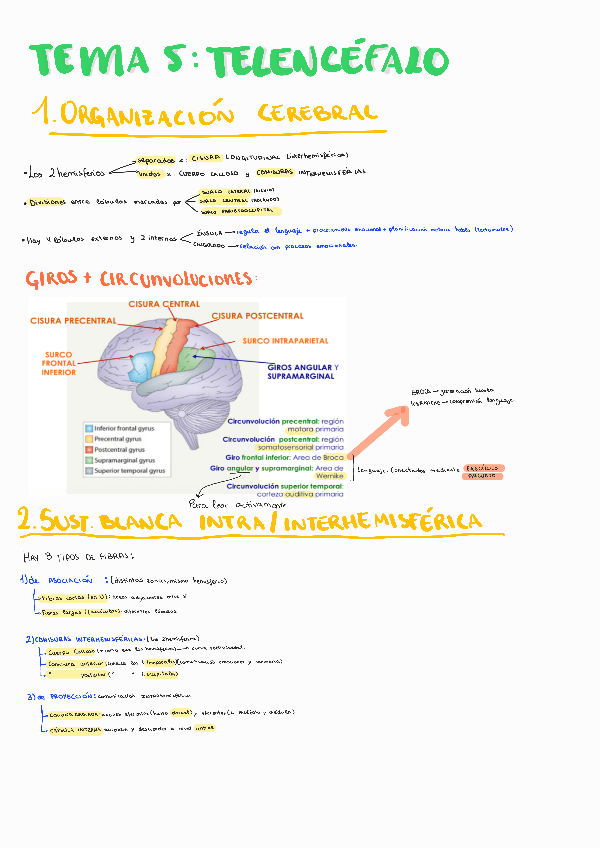 TEMA 5: TELENCÉFALO
1. ORGANIZACIÓN CEREBRAL
• Los 2 hemisferios
separados x: CISURA LONGITUDINAL (interhemisférica)
unidos x: CUERPO CALLOSO y COMISURAS INTERHEMISFERIAS
• Divisiones entre lóbulos marcadas por
SURCO LATERAL (SILVIO)
SURCO CENTRAL (ROLANDO)
SURCO PARIETOOCCIPITAL
• Hay 4 lóbulos externos y 2 internos
ÍNSULA → regula el lenguaje + procesamiento emocional + planificación motora habla (temporales)
CINGULADO → relación con procesos emocionales.
GIROS + CIRCUNVOLUCIONES:
CISURA CENTRAL
CISURA PRECENTRAL
CISURA POSTCENTRAL
SURCO INTRAPARIETAL
SURCO FRONTAL INFERIOR
GIROS ANGULAR Y SUPRAMARGINAL
Inferior frontal gyrus
Precentral gyrus
Postcentral gyrus
Supramarginal gyrus
Superior temporal gyrus
Circunvolución precentral: región
motora primaria
Circunvolución postcentral: región
somatosensorial primaria
Giro frontal inferior: Area de Broca
Giro angular y supramarginal: Area de
Wernike
Circunvolución superior temporal:
corteza auditiva primaria
BROCA → producción habla
WERNICKE → comprensión lenguaje
Lenguaje. Conectadas mediante FASCÍCULO
ARQUATO
Para leer activamente
2. SUST. BLANCA INTRA/INTERHEMISFÉRICA
HAY 3 TIPOS DE FIBRAS:
1) de ASOCIACIÓN: (distintas zonas, mismo hemisferio)
Fibras cortas (en U): áreas adyacentes entre sí
Fibras largas (fascículos): diferentes lóbulos
2) COMISURAS INTERHEMISFÉRICAS: (los 2 hemisferios)
Cuerpo Calloso
Comisura anterior
" posterior
3) de PROYECCIÓN:
CORONA RADIADA
CÁPSULA INTERNA